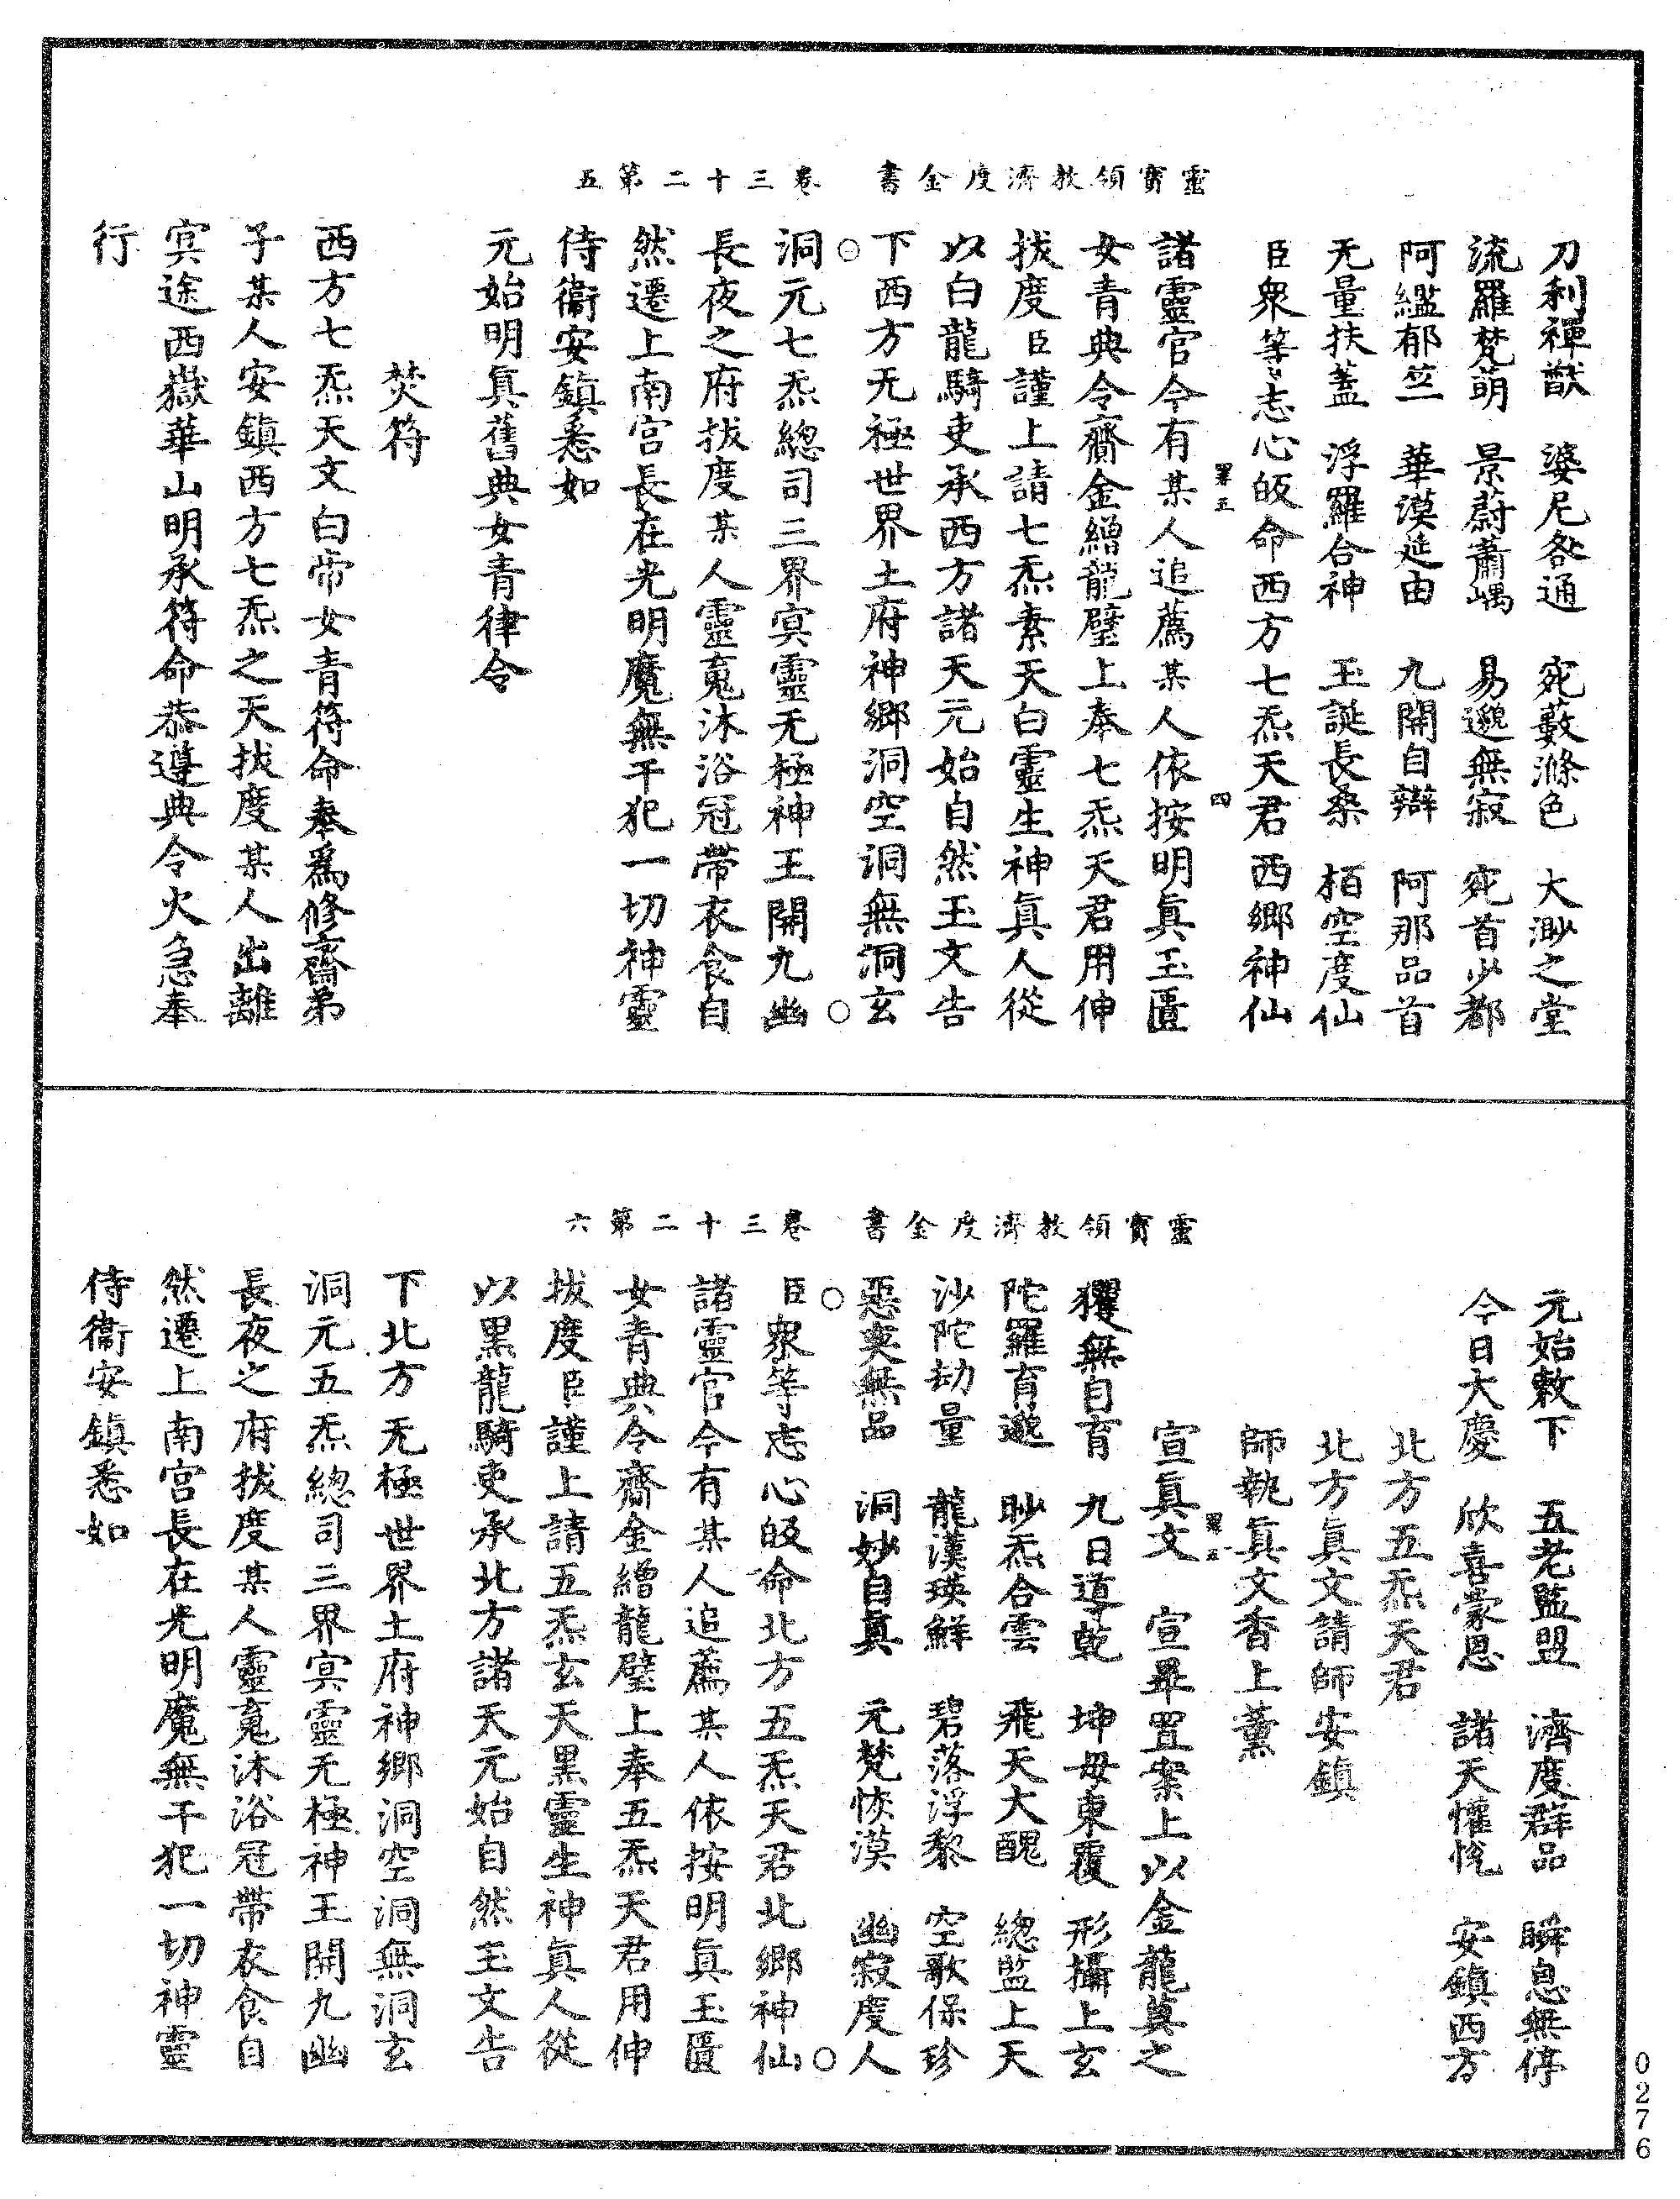 靈寶領教濟度金書　卷三十二第五
刀利禪猷　婆尼咎通　宛藪滌色　大渺之堂
流羅梵萌　景蔚蕭嵎　易邈無寂　宛首少都
阿緼郁竺　華漠延由　九開自辯　阿那品首
无量扶蓋　浮羅合神　玉誕長桑　栢空度仙
臣眾等志心皈命西方七炁天君西鄉神仙
諸靈官今有某人追薦某人依按明眞玉匱
女青典令齋金繒龍璧上奉七炁天君用伸
拔度臣謹上請七炁素天白靈生神眞人從
以白龍騎吏承西方諸天元始自然玉文告
下西方无極世界土府神鄉洞空洞無洞玄
洞元七炁總司三界冥靈无極神王開九幽
長夜之府拔度某人靈䰟沐浴冠帶衣食自
然遷上南宮長在光明魔無干犯一切神靈
侍衞安鎮悉如
元始明眞舊典女青律令
焚符
西方七炁天文白帝女青符命奉爲修齋弟
子某人安鎮西方七炁之天拔度某人出離
冥途西嶽華山明承符命恭遵典令火急奉
行
靈寶領教濟度金書　卷三十二第六
元始敕下　五老監盟　濟度群品　瞬息無停
今日大慶　欣喜蒙恩　諸天懽悅　安鎮西方
北方五炁天君
北方眞文請師安鎮
師執眞文香上薰
宣眞文　宣畢置案上以金龍奠之
玃無自育　九日導乾　坤母東覆　形攝上玄
陀羅育邈　眇炁合雲　飛天大醜　總監上天
沙陀劫量　龍漢瑛鮮　碧落浮黎　空歌保珍
惡奕無品　洞妙自眞　元梵恢漠　幽寂度人
臣眾等志心皈命北方五炁天君北鄉神仙
諸靈官今有某人追薦某人依按明眞玉匱
女青典令齋金繒龍璧上奉五炁天君用伸
拔度臣謹上請五炁玄天黑靈生神眞人從
以黑龍騎吏承北方諸天元始自然玉文告
下北方无極世界土府神鄉洞空洞無洞玄
洞元五炁總司三界冥靈无極神王開九幽
長夜之府拔度某人靈䰟沐浴冠帶衣食自
然遷上南宮長在光明魔無干犯一切神靈
侍衞安鎮悉如
0276